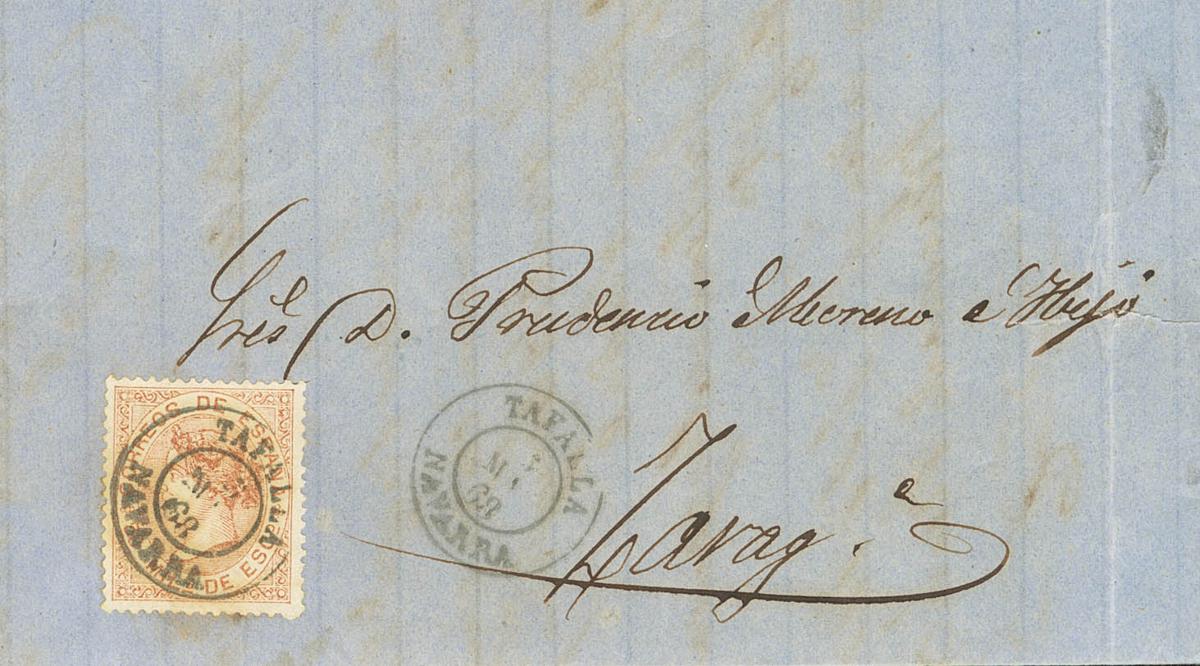 Sres D. Prudencio Moreno é Hijo
Zarag.a
CORREOS DE ESPAÑA
DE ESCO
TAFALLA
68
NAVARRA
TAFALLA
68
NAVARRA